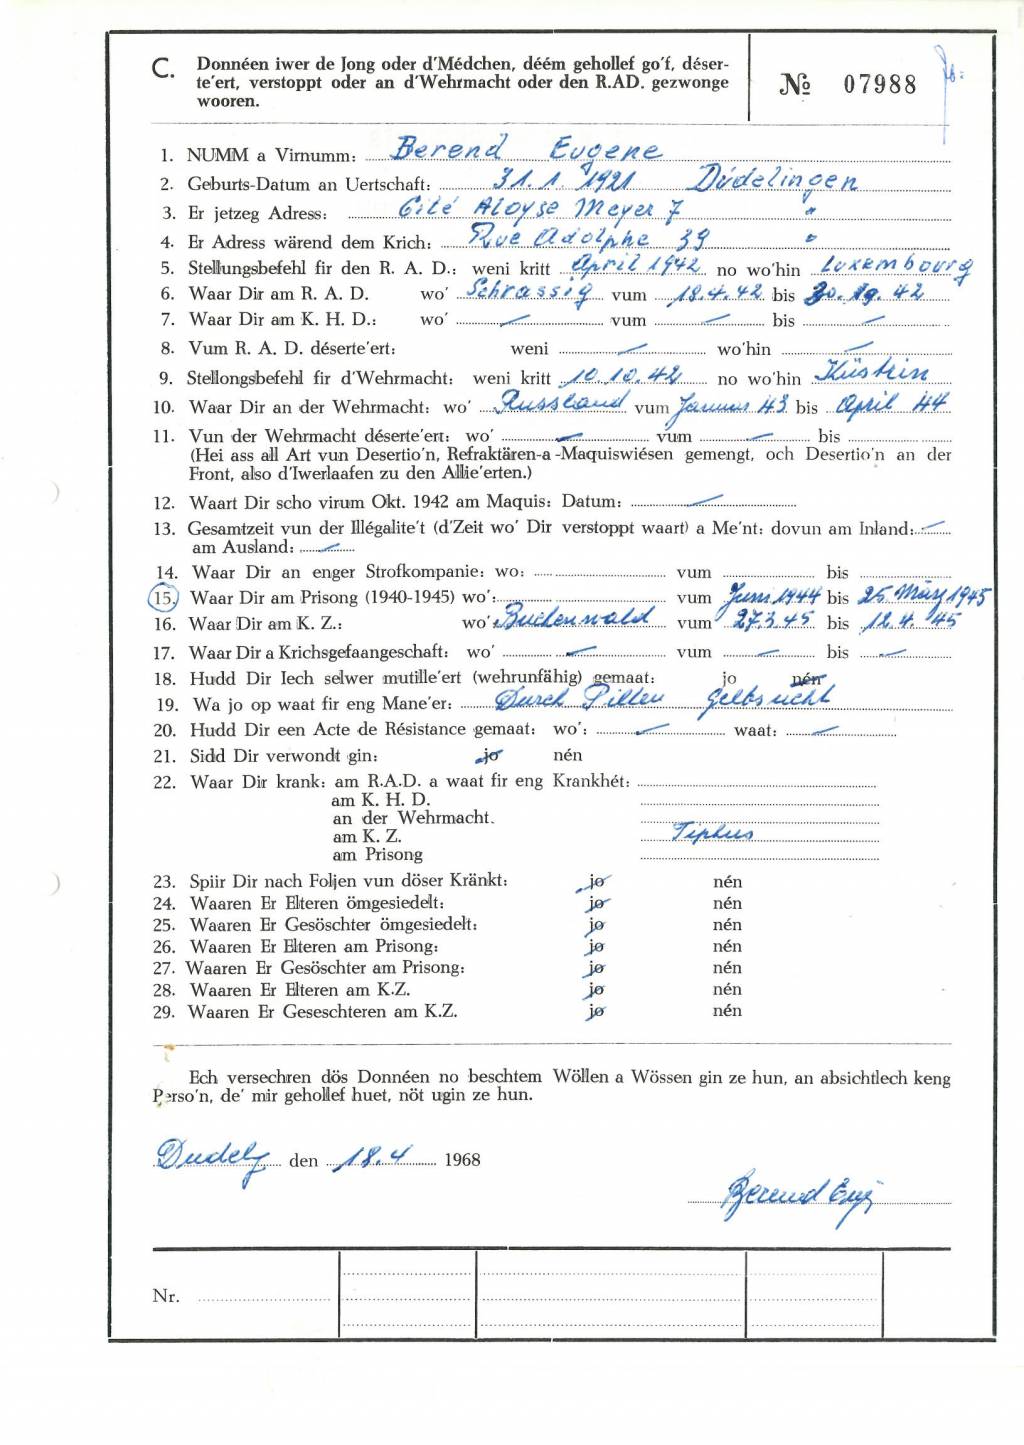 C. Donnéen iwer de Jong oder d'Médchen, déém gehollef go'f, déser-
te'ert, verstoppt oder an d'Wehrmacht oder den R.AD. gezwonge
wooren.
№ 07988
1. NUMM a Virnumm: Berend Eugene
2. Geburts-Datum an Uertschaft: 31.1.1921 Düdelingen
3. Er jetzeg Adress: Cité Aloyse Meyer 7 "
4. Er Adress wärend dem Krich: Rue Adolphe 39 "
5. Stellungsbefehl fir den R. A. D.: weni kritt April 1942 no wo'hin Luxembourg
6. Waar Dir am R. A. D. wo' Schrassig vum 18.4.42 bis 42
7. Waar Dir am K. H. D.: wo' — vum — bis —
8. Vum R. A. D. déserte'ert: weni — wo'hin —
9. Stellongsbefehl fir d'Wehrmacht: weni kritt 10.10.42 no wo'hin Küstrin
10. Waar Dir an der Wehrmacht: wo' Russland vum Januar 43 bis April 44
11. Vun der Wehrmacht déserte'ert: wo' — vum — bis
(Hei ass all Art vun Desertio'n, Refraktären-a -Maquiswiésen gemengt, och Desertio'n an der
Front, also d'Iwerlaafen zu den Allie'erten.)
12. Waart Dir scho virum Okt. 1942 am Maquis: Datum: —
13. Gesamtzeit vun der Illégalite't (d'Zeit wo' Dir verstoppt waart) a Me'nt: dovun am Inland: —
am Ausland: —
14. Waar Dir an enger Strofkompanie: wo: vum bis
15. Waar Dir am Prisong (1940-1945) wo': vum Juni 1944 bis 25. März 1945
16. Waar Dir am K. Z.: wo': Buchenwald vum 27.3.45 bis 12.4.45
17. Waar Dir a Krichsgefaangeschaft: wo' — vum — bis —
18. Hudd Dir Iech selwer mutille'ert (wehrunfähig) gemaat: jo nén
19. Wa jo op waat fir eng Mane'er: Durch Pillen Gelbsucht
20. Hudd Dir een Acte de Résistance gemaat: wo': — waat: —
21. Sidd Dir verwondt gin: jo nén
22. Waar Dir krank: am R.A.D. a waat fir eng Krankhét:
am K. H. D.
an der Wehrmacht.
am K. Z. Tiphus
am Prisong
23. Spiir Dir nach Foljen vun döser Kränkt: jo nén
24. Waaren Er Elteren ömgesiedelt: jo nén
25. Waaren Er Gesöschter ömgesiedelt: jo nén
26. Waaren Er Elteren am Prisong: jo nén
27. Waaren Er Gesöschter am Prisong: jo nén
28. Waaren Er Elteren am K.Z. jo nén
29. Waaren Er Geseschteren am K.Z. jo nén
Ech versechren dös Donnéen no beschtem Wöllen a Wössen gin ze hun, an absichtlech keng
Perso'n, de' mir gehollef huet, nöt ugin ze hun.
Dudelg den 18.4 1968
Berend Eug
Nr.